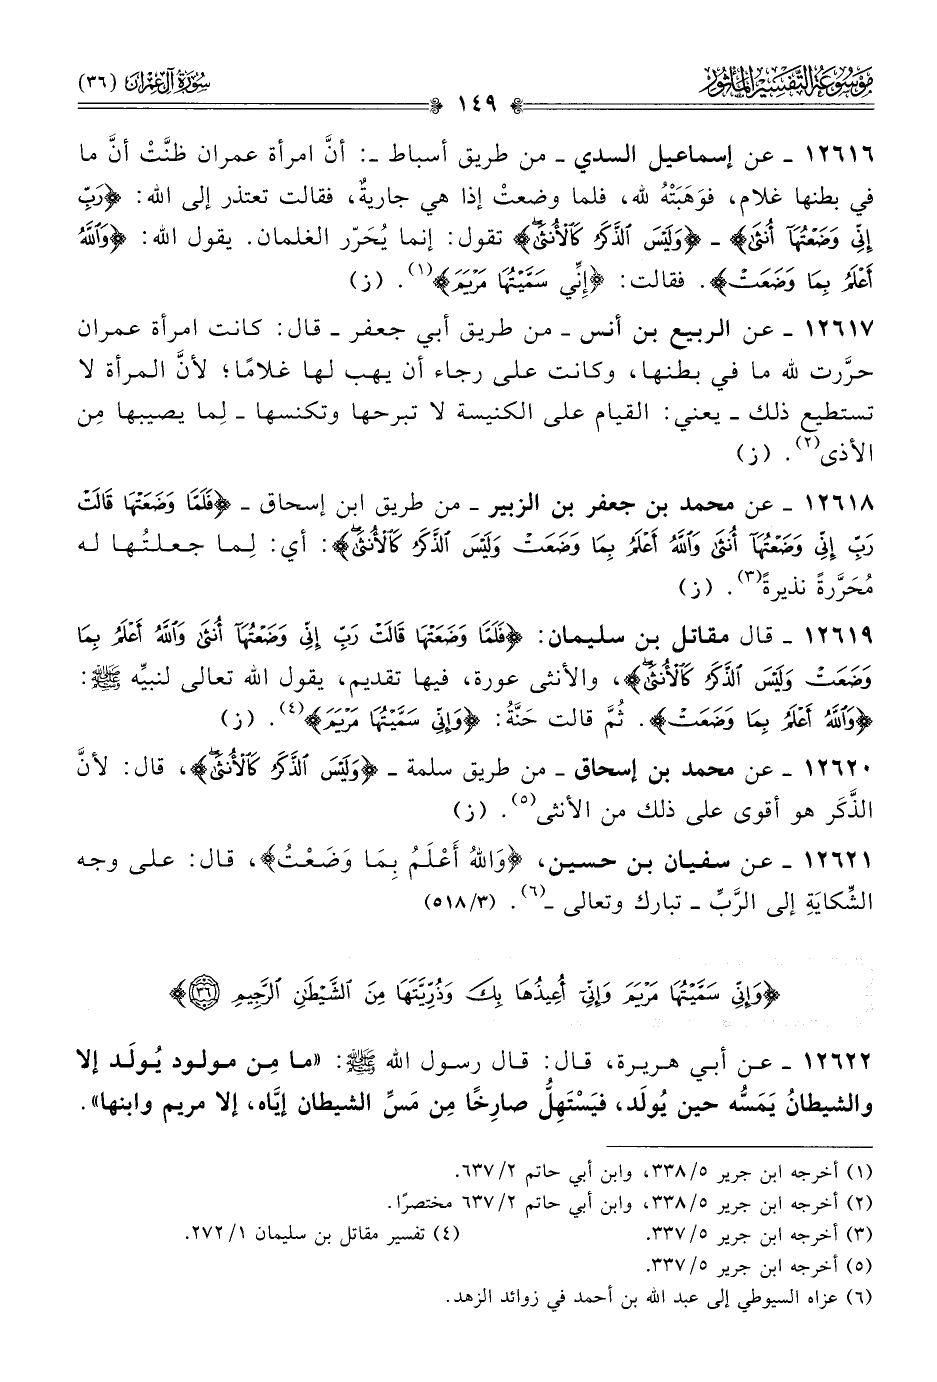 مَوْسُوعَةُ التَّفْسِيرِ المَأْثُورِ
سُورَةُ آلِ عِمْرَان (٣٦)
١٤٩
١٢٦١٦ ـ عن إسماعيل السدي ـ من طريق أسباط ـ: أنَّ امرأة عمران ظنَّتْ أنَّ ما
في بطنها غلام، فوَهَبَتْهُ لله، فلما وضعتْ إذا هي جاريةٌ، فقالت تعتذر إلى الله: ﴿رَبِّ
إِنِّي وَضَعْتُهَآ أُنثَىٰ﴾ ـ ﴿وَلَيْسَ ٱلذَّكَرُ كَٱلْأُنثَىٰۖ﴾ تقول: إنما يُحَرّر الغلمان. يقول الله: ﴿وَٱللَّهُ
أَعْلَمُ بِمَا وَضَعَتْ﴾. فقالت: ﴿إِنِّي سَمَّيْتُهَا مَرْيَمَ﴾(١). (ز)
١٢٦١٧ ـ عن الربيع بن أنس ـ من طريق أبي جعفر ـ قال: كانت امرأة عمران
حرَّرت لله ما في بطنها، وكانت على رجاء أن يهب لها غلامًا؛ لأنَّ المرأة لا
تستطيع ذلك ـ يعني: القيام على الكنيسة لا تبرحها وتكنسها ـ لِما يصيبها مِن
الأذى(٢). (ز)
١٢٦١٨ ـ عن محمد بن جعفر بن الزبير ـ من طريق ابن إسحاق ـ ﴿فَلَمَّا وَضَعَتْهَا قَالَتْ
رَبِّ إِنِّي وَضَعْتُهَآ أُنثَىٰ وَٱللَّهُ أَعْلَمُ بِمَا وَضَعَتْ وَلَيْسَ ٱلذَّكَرُ كَٱلْأُنثَىٰۖ﴾: أي: لِما جعلتُها له
مُحَرَّرةً نذيرةً(٣). (ز)
١٢٦١٩ ـ قال مقاتل بن سليمان: ﴿فَلَمَّا وَضَعَتْهَا قَالَتْ رَبِّ إِنِّي وَضَعْتُهَآ أُنثَىٰ وَٱللَّهُ أَعْلَمُ بِمَا
وَضَعَتْ وَلَيْسَ ٱلذَّكَرُ كَٱلْأُنثَىٰۖ﴾، والأنثى عورة، فيها تقديم، يقول الله تعالى لنبيِّه ﷺ:
﴿وَٱللَّهُ أَعْلَمُ بِمَا وَضَعَتْ﴾. ثُمَّ قالت حَنَّةُ: ﴿وَإِنِّي سَمَّيْتُهَا مَرْيَمَ﴾(٤). (ز)
١٢٦٢٠ ـ عن محمد بن إسحاق ـ من طريق سلمة ـ ﴿وَلَيْسَ ٱلذَّكَرُ كَٱلْأُنثَىٰۖ﴾، قال: لأنَّ
الذَّكَر هو أقوى على ذلك من الأنثى(٥). (ز)
١٢٦٢١ ـ عن سفيان بن حسين، ﴿وَاللهُ أَعْلَمُ بِمَا وَضَعْتُ﴾، قال: على وجه
الشِّكايَةِ إلى الرَّبِّ ـ تبارك وتعالى ـ(٦). (٥١٨/٣)
﴿وَإِنِّي سَمَّيْتُهَا مَرْيَمَ وَإِنِّيٓ أُعِيذُهَا بِكَ وَذُرِّيَّتَهَا مِنَ ٱلشَّيْطَٰنِ ٱلرَّجِيمِ ٣٦﴾
١٢٦٢٢ ـ عن أبي هريرة، قال: قال رسول الله ﷺ: «ما مِن مولود يُولَد إلا
والشيطانُ يَمَسُّه حين يُولَد، فيَسْتَهِلُّ صارِخًا مِن مَسِّ الشيطان إيَّاه، إلا مريم وابنها».
(١) أخرجه ابن جرير ٣٣٨/٥، وابن أبي حاتم ٦٣٧/٢.
(٢) أخرجه ابن جرير ٣٣٨/٥، وابن أبي حاتم ٦٣٧/٢ مختصرًا.
(٣) أخرجه ابن جرير ٣٣٧/٥. (٤) تفسير مقاتل بن سليمان ٢٧٢/١.
(٥) أخرجه ابن جرير ٣٣٧/٥.
(٦) عزاه السيوطي إلى عبد الله بن أحمد في زوائد الزهد.